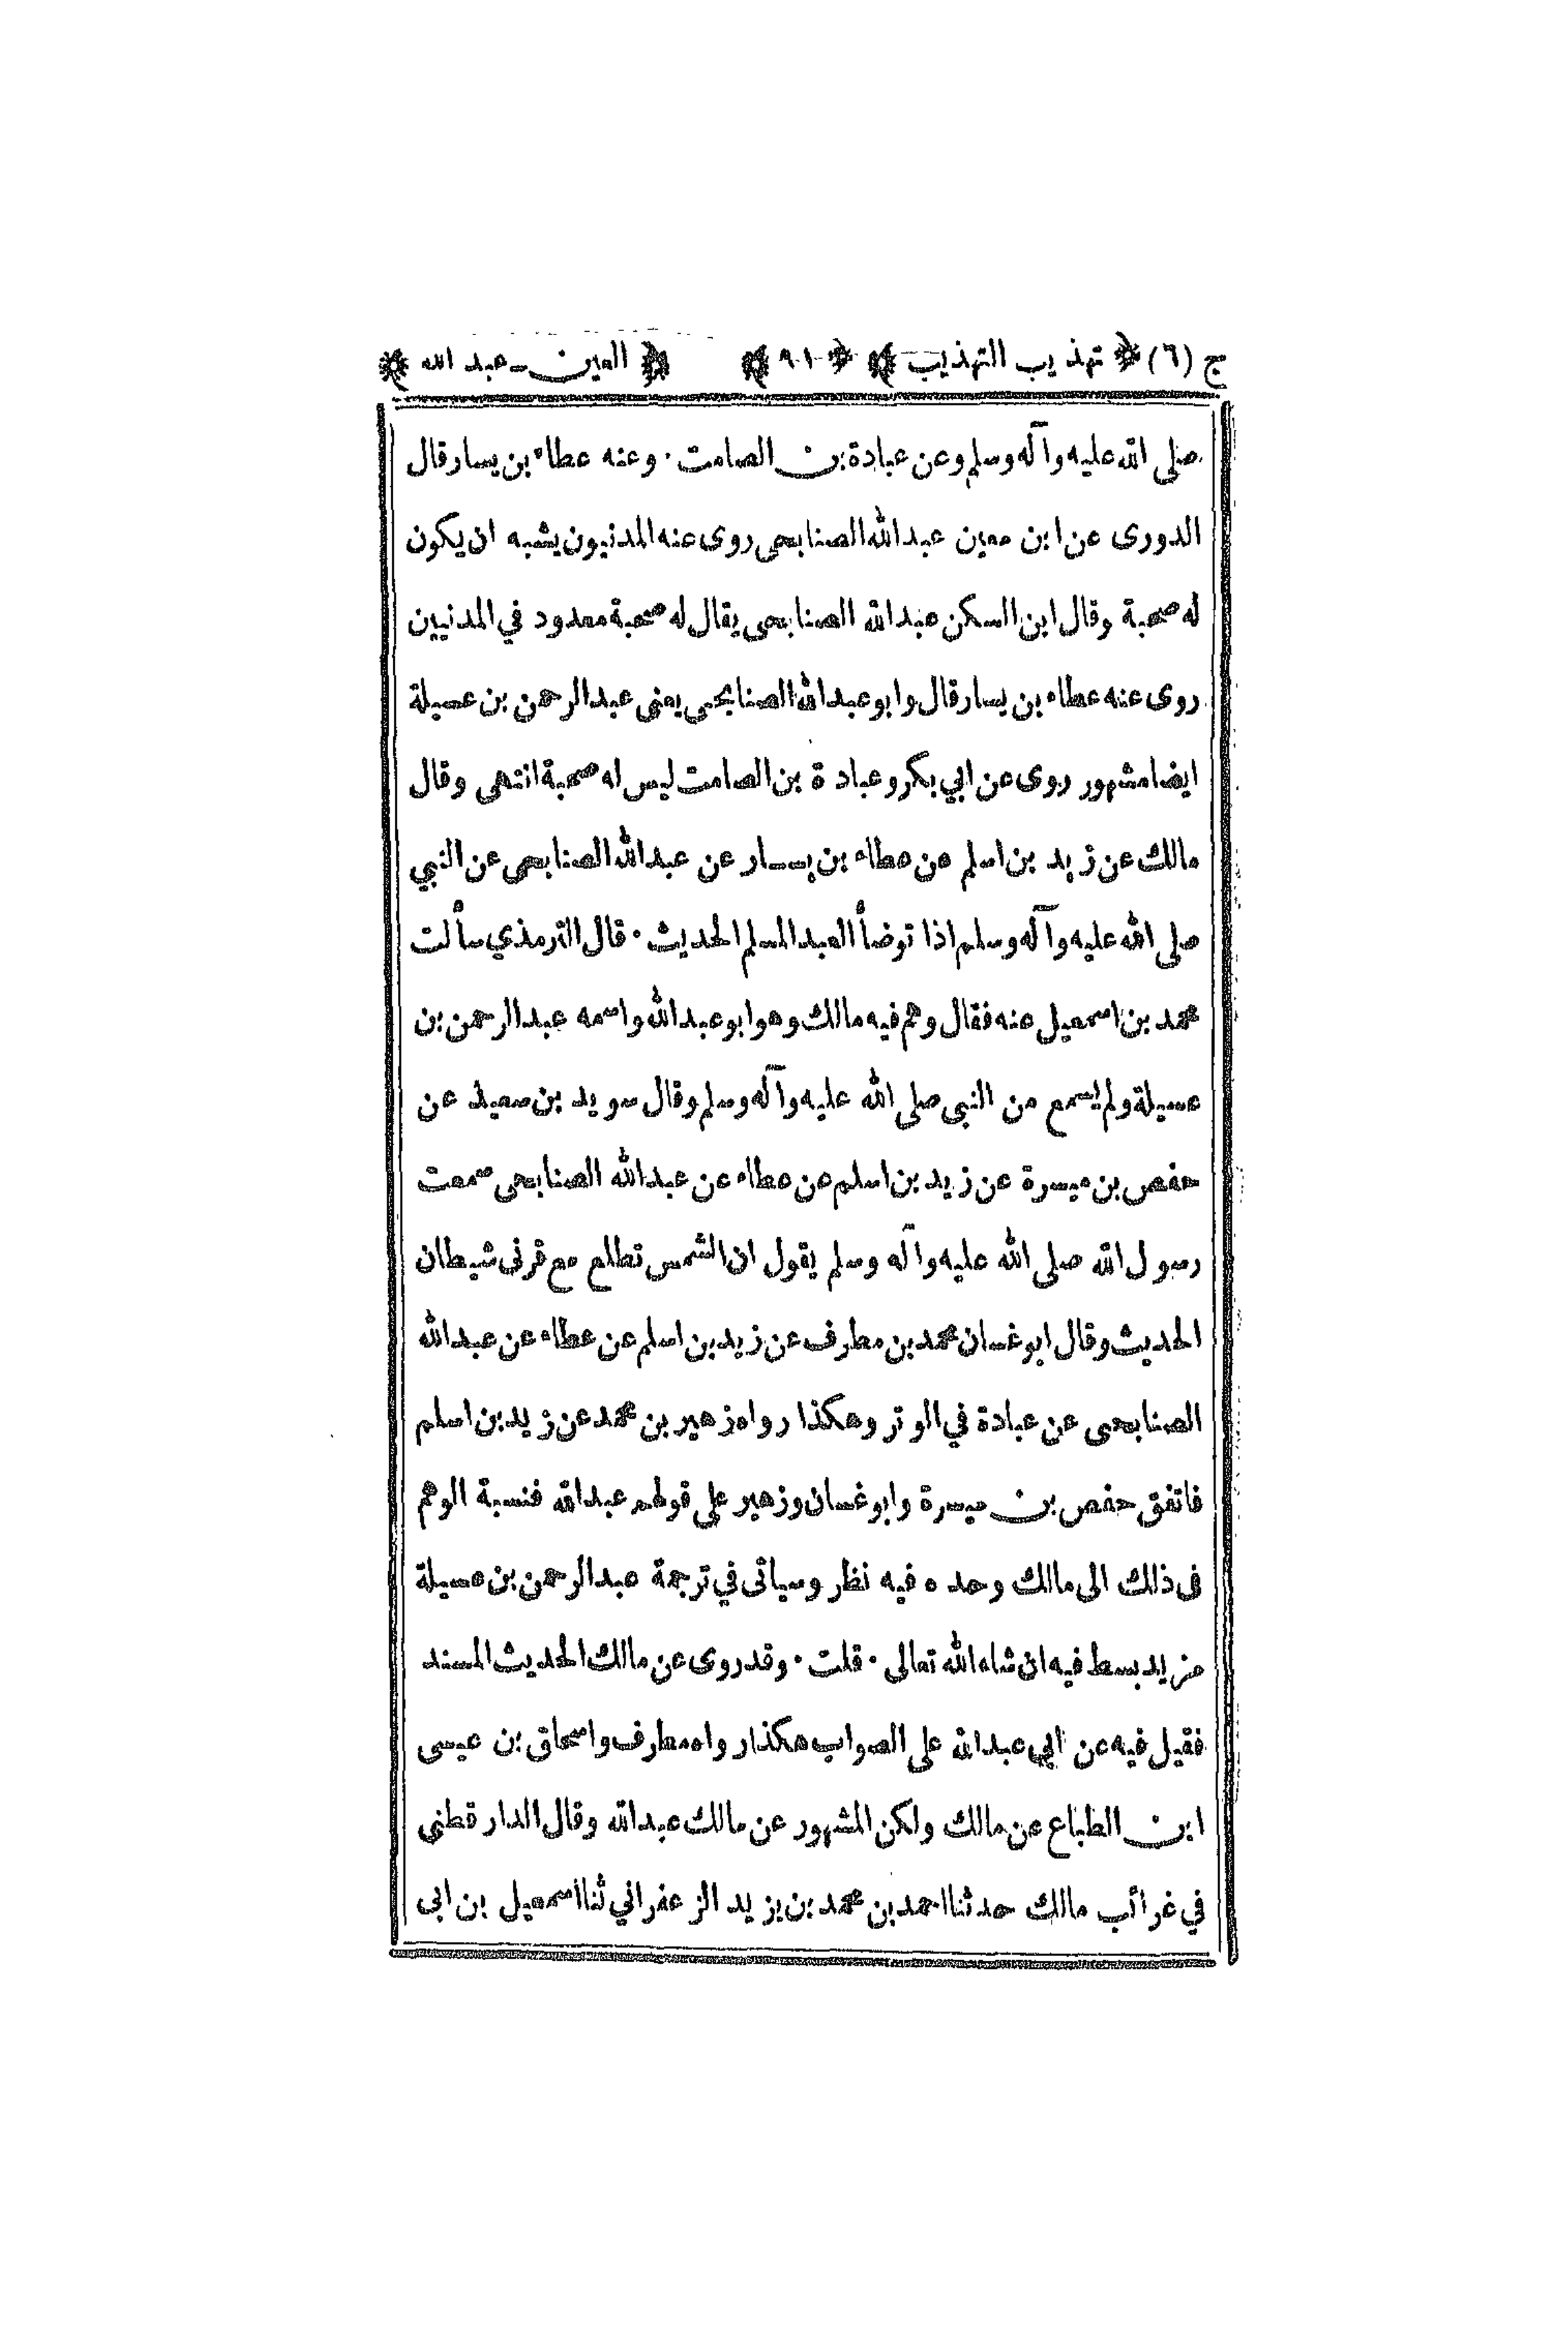 ج (٦) ﴿ تهذيب التهذيب ﴾ ﴿ ٩١ ﴾ ﴿ العين - عبد الله ﴾
صلى الله عليه وآله وسلم وعن عبادة بن الصامت · وعنه عطاء بن يسار قال
الدورى عن ابن معين عبد الله الصنابحى روى عنه المدنيون يشبه ان يكون
له صحبة وقال ابن السكن عبد الله الصنابحى يقال له صحبة معدود في المدنيين
روى عنه عطاء بن يسار قال وابو عبد الله الصنابحى يعنى عبد الرحمن بن عسيلة
ايضا مشهور روى عن ابي بكر وعبادة بن الصامت ليس له صحبة انتهى وقال
مالك عن زيد بن اسلم عن عطاء بن يسار عن عبد الله الصنابحى عن النبي
صلى الله عليه وآله وسلم اذا توضأ العبد المسلم الحديث · قال الترمذي سألت
محمد بن اسمعيل عنه فقال وهم فيه مالك وهو ابو عبد الله واسمه عبد الرحمن بن
عسيلة ولم يسمع من النبى صلى الله عليه وآله وسلم وقال سويد بن سعيد عن
حفص بن ميسرة عن زيد بن اسلم عن عطاء عن عبد الله الصنابحى سمعت
رسول الله صلى الله عليه وآله وسلم يقول ان الشمس تطلع مع قرنى شيطان
الحديث وقال ابو غسان محمد بن مطرف عن زيد بن اسلم عن عطاء عن عبد الله
الصنابحى عن عبادة في الوتر وهكذا رواه زهير بن محمد عن زيد بن اسلم
فاتفق حفص بن ميسرة وابو غسان وزهير على قولهم عبد الله فنسبة الوهم
فى ذلك الى مالك وحده فيه نظر وسياتى في ترجمة عبد الرحمن بن عسيلة
مزيد بسط فيه ان شاء الله تعالى · قلت · وقد روى عن مالك الحديث المسند
فقيل فيه عن ابي عبد الله على الصواب هكذا رواه مطرف واسحاق بن عيسى
ابن الطباع عن مالك ولكن المشهور عن مالك عبد الله وقال الدارقطني
في غرائب مالك حدثنا احمد بن محمد بن يزيد الزعفراني ثنا اسمعيل بن ابى